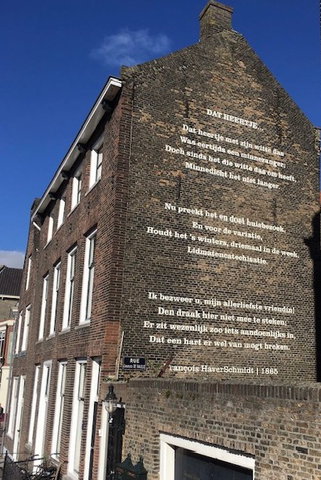 DAT HEERTJE
Dat heertje met zijn witte das
Was eertijds een minnezanger,
Doch sinds het die witte das om heeft,
Minnedicht het niet langer.
Nu preekt het en doet huisbezoek,
En voor de variatie,
Houdt het 's winters, driemaal in de week,
Lidmatencatechisatie.
Ik bezweer u, mijn allerliefste vriendin!
Den draak hier niet mee te steken;
Er zit wezenlijk zoo iets aandoenlijks in,
Dat een hart er wel van mogt breken.
François HaverSchmidt | 1865
RUE